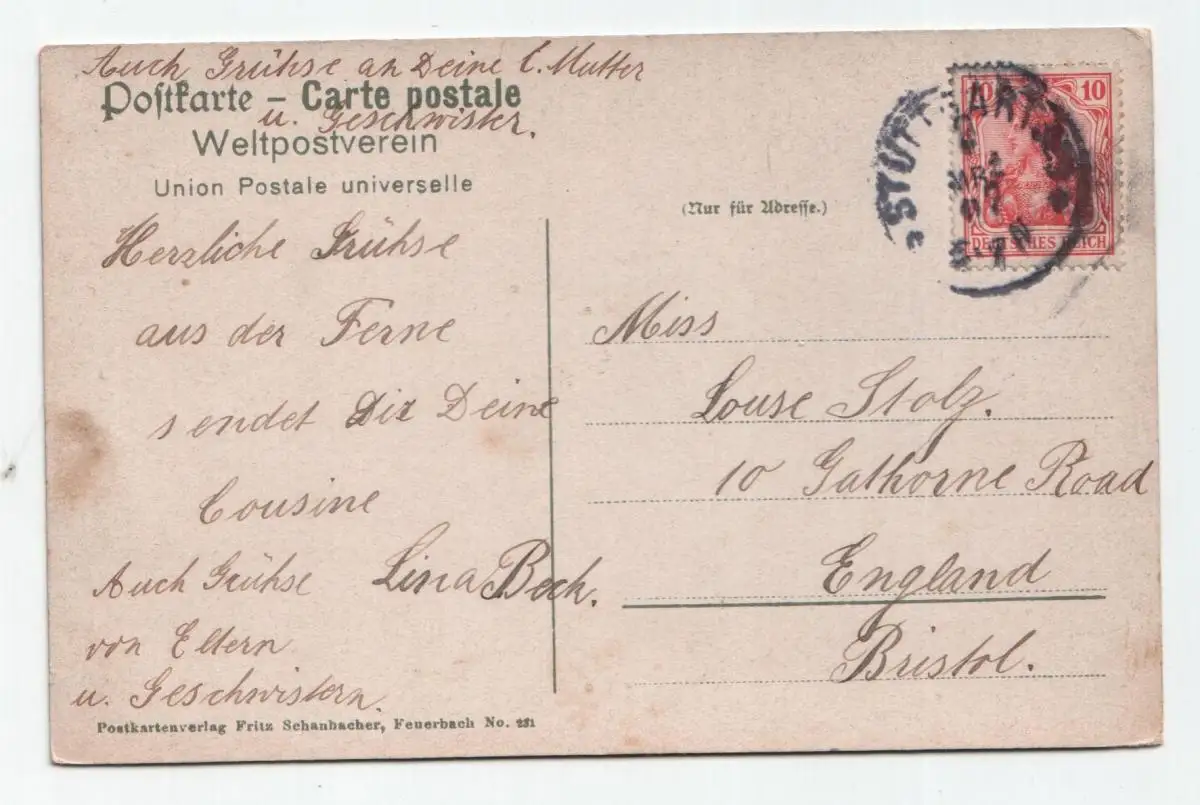 Auch Grühse an Deine l. Mutter
u. Geschwister.
Postkarte – Carte postale
Weltpostverein
Union Postale universelle
(Nur für Adresse.)
10 10
DEUTSCHES REICH
STUTTGART
MRZ
07
5-7 N
Herzliche Grühse
aus der Ferne
sendet Dir Deine
Cousine
Lina Beck.
Auch Grühse
von Eltern
u. Geschwistern.
Miss
Louse Stolz.
10 Gathorne Road
England
Bristol.
Postkartenverlag Fritz Schanbacher, Feuerbach No. 231